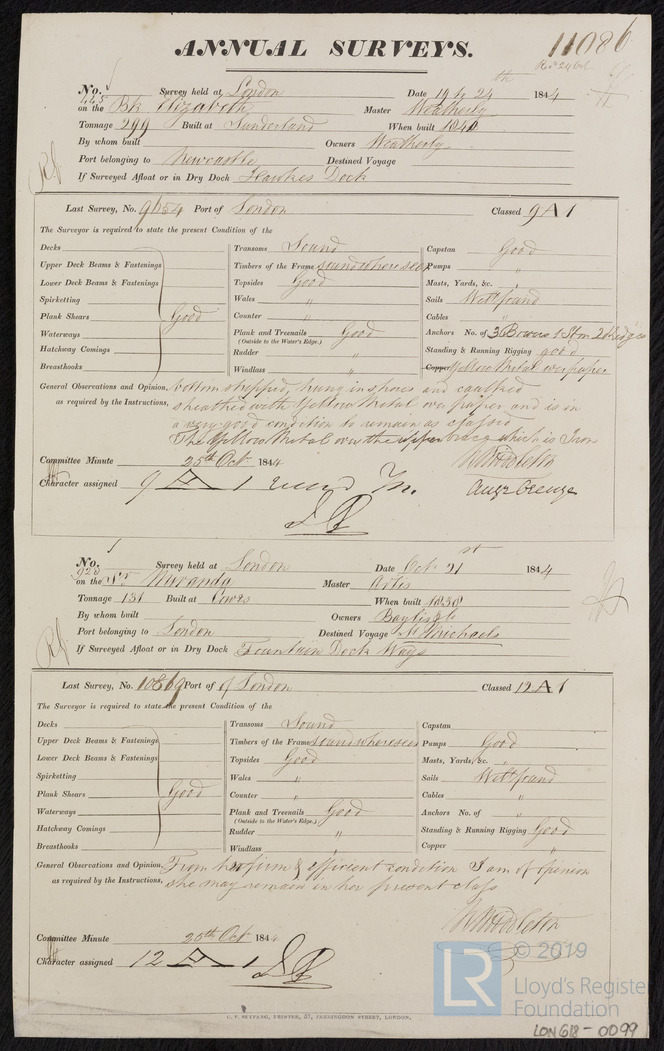 ANNUAL SURVEYS.
11086
No. 445 Survey held at London Date 19 & 24th 1844
on the Bk Elizabeth Master Weatherly
Tonnage 299 Built at Sunderland When built 1840
By whom built Owners Weatherly
Port belonging to Newcastle Destined Voyage
If Surveyed Afloat or in Dry Dock Hawkes Dock
Last Survey, No. 9654 Port of London Classed 9 A 1
The Surveyor is required to state the present Condition of the
Decks Transoms Sound Capstan Good
Upper Deck Beams & Fastenings Timbers of the Frame sound where seen Pumps "
Lower Deck Beams & Fastenings Topsides Good Masts, Yards, &c. "
Spirketting Wales " Sails Well found
Plank Shears Good Counter " Cables "
Waterways Plank and Treenails Good Anchors No. of 3 Bowers 1 Strm 2 Kedges
(Outside to the Water's Edge.)
Hatchway Comings Rudder " Standing & Running Rigging good
Breasthooks Windlass " Copper Yellow Metal over paper
General Observations and Opinion, bottom stripped, hung in spars and caulked
as required by the Instructions, sheathed with Yellow Metal over paper and is in
a very good condition to remain as classed
The Yellow Metal over the upper bracg which is Iron
Committee Minute 25th Oct 1844
Character assigned 9 A 1
No. 925 Survey held at London Date Oct 21st 1844
on the Sr Miranda Master Artis
Tonnage 131 Built at Cowes When built 1839
By whom built Owners Bayliss &
Port belonging to London Destined Voyage St Michaels
If Surveyed Afloat or in Dry Dock Fountain Dock Ways
Last Survey, No. 10569 Port of of London Classed 12 A 1
The Surveyor is required to state the present Condition of the
Decks Transoms Sound Capstan
Upper Deck Beams & Fastenings Timbers of the Frame sound where seen Pumps Good
Lower Deck Beams & Fastenings Topsides Good Masts, Yards, &c. "
Spirketting Wales " Sails Well found
Plank Shears Good Counter " Cables "
Waterways Plank and Treenails Good Anchors No. of "
(Outside to the Water's Edge.)
Hatchway Comings Rudder " Standing & Running Rigging Good
Breasthooks Windlass " Copper "
General Observations and Opinion, From her firm & efficient condition I am of Opinion
as required by the Instructions, she may remain in her present class
Committee Minute 25th Oct 1844
Character assigned 12 A 1
C. F. SEYFANG, PRINTER, 57, FARRINGDON STREET, LONDON.
LR © 2019
Lloyd's Register
Foundation
LON618-0099